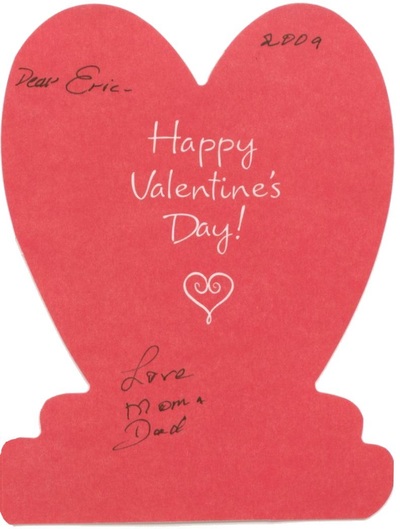 2009
Dear Eric-
Happy
Valentine's
Day!
Love
Mom &
Dad